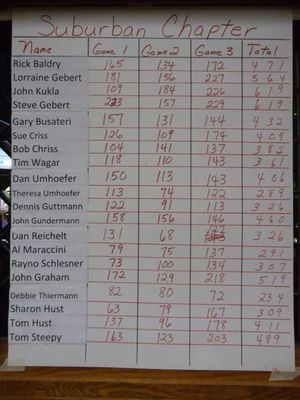 Suburban Chapter
Name Game 1 Game 2 Game 3 Total
Rick Baldry 165 134 172 471
Lorraine Gebert 181 156 227 564
John Kukla 184 226 619
Steve Gebert 157 229 619
Gary Busateri 157 131 144 432
Sue Criss 126 109 174 409
Bob Chriss 104 141 137 382
Tim Wagar 118 110 143 361
Dan Umhoefer 150 113 143 406
Theresa Umhoefer 113 74 122 289
Dennis Guttmann 122 91 113 326
John Gundermann 158 156 146 460
Dan Reichelt 131 68 127 326
Al Maraccini 79 75 137 291
Rayno Schlesner 73 100 134 307
John Graham 172 129 218 519
Debbie Thiermann 82 80 72 234
Sharon Hust 63 79 167 309
Tom Hust 137 96 178 411
Tom Steepy 163 123 203 489